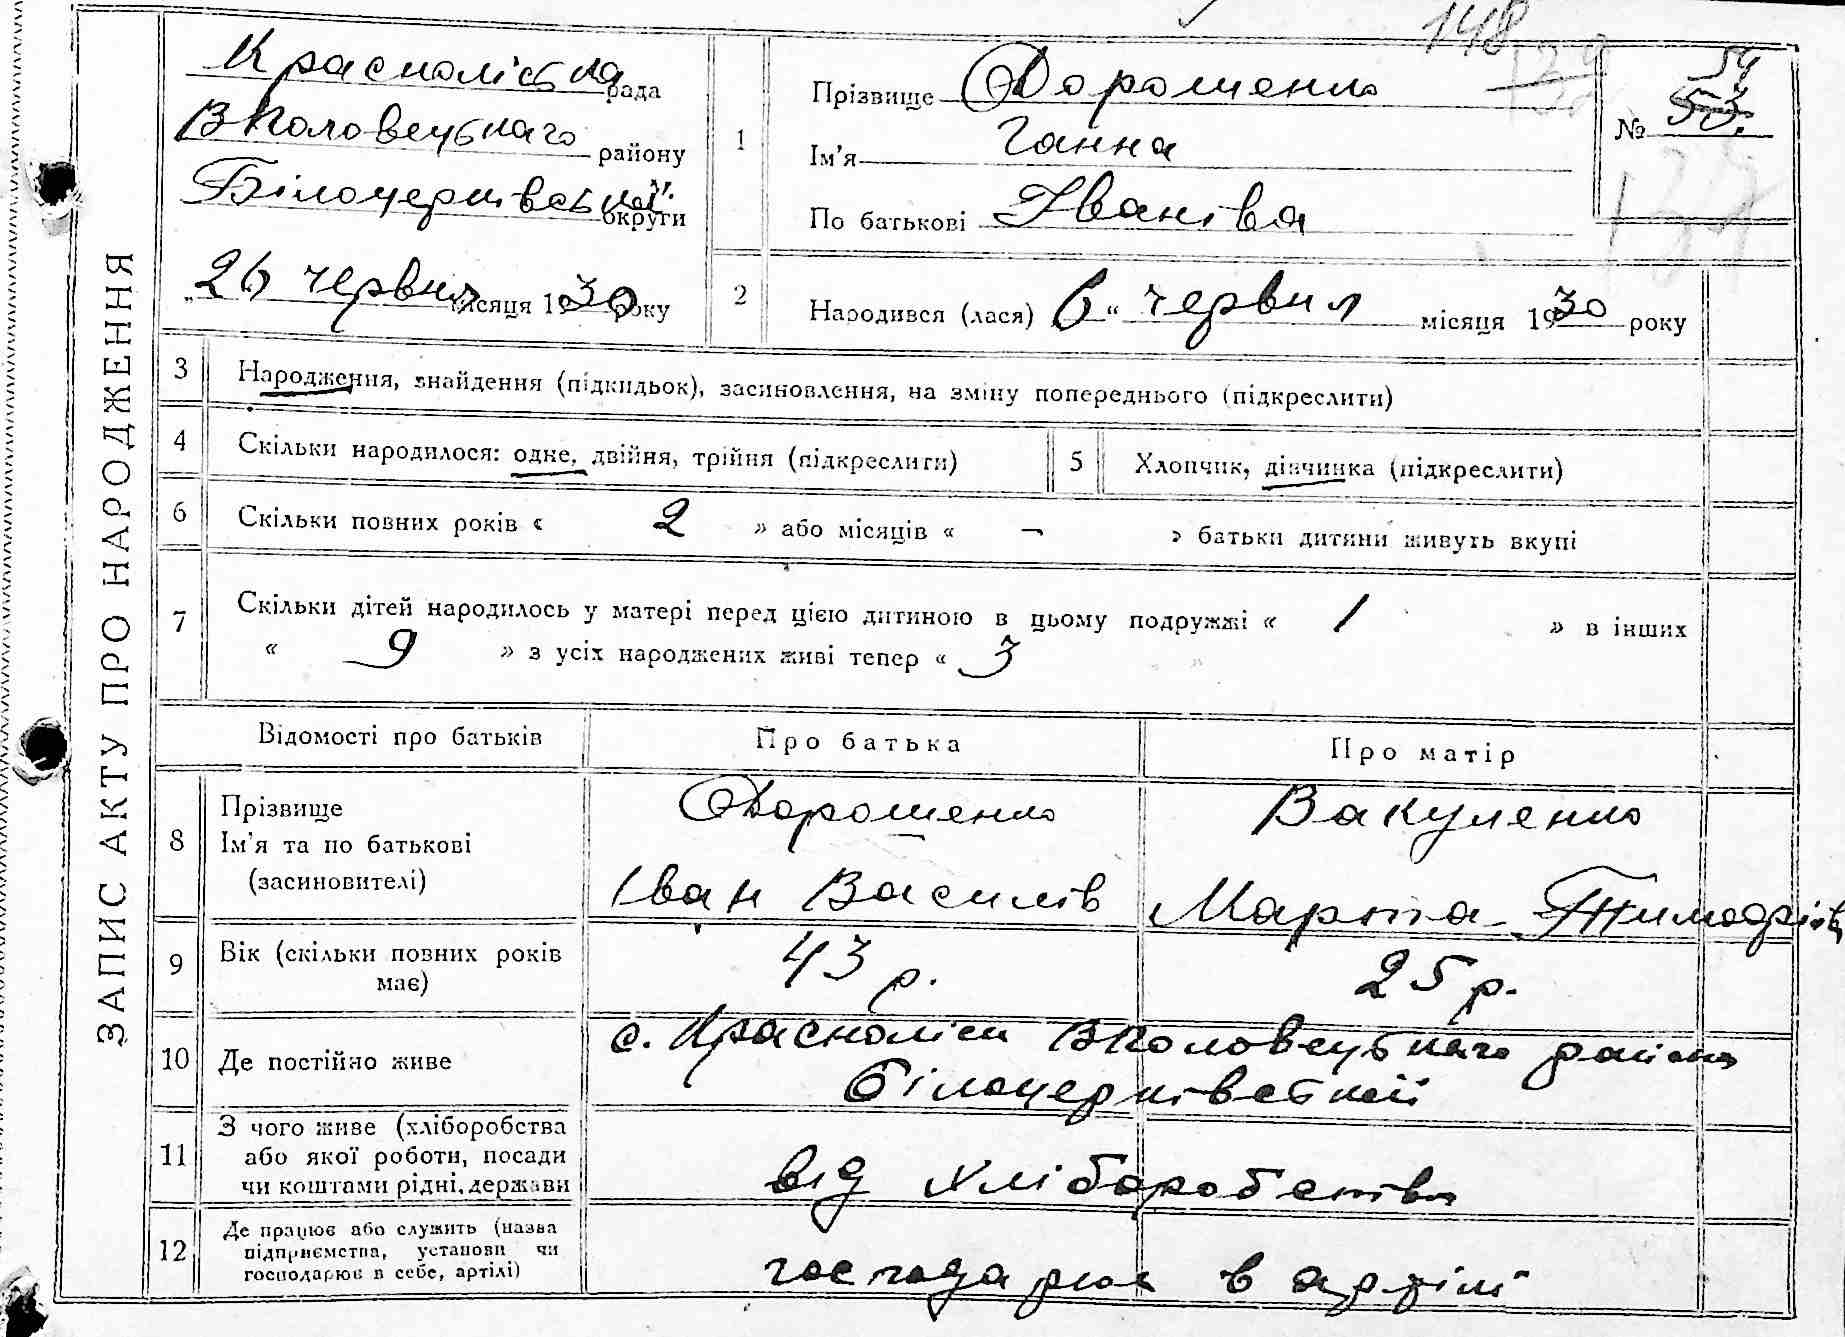 148
Краснолiська рада
ВПоловецького району
Бiлоцеркiвської округи
„26 червня місяця 1930 року
1
Прізвище Дорошенко
Ім'я Ганна
По батькові Іванівна
№ 54
53.
2
Народився (лася) „6“ червня місяця 1930 року
ЗАПИС АКТУ ПРО НАРОДЖЕННЯ
3 Народження, знайдення (підкидьок), засиновлення, на зміну попереднього (підкреслити)
4 Скільки народилося: одне, двійня, трійня (підкреслити)
5 Хлопчик, дівчинка (підкреслити)
6 Скільки повних років « 2 » або місяців « – » батьки дитини живуть вкупі
7 Скільки дітей народилось у матері перед цією дитиною в цьому подружжі « 1 » в інших
« 9 » з усіх народжених живі тепер « 3 »
Відомості про батьків Про батька Про матір
8 Прізвище Дорошенко Вакуленко
Ім'я та по батькові
(засиновителі) Іван Василів Марта Тимофіів
9 Вік (скільки повних років 43 р. 25 р.
має)
10 Де постійно живе с. Красноліси ВПоловецького района
Білоцерківської
11 З чого живе (хліборобства
або якої роботи, посади
чи коштами рідні, держави від хліборобства
12 Де працює або служить (назва
підприємства, установи чи
господарює в себе, артілі) господарює в артілі